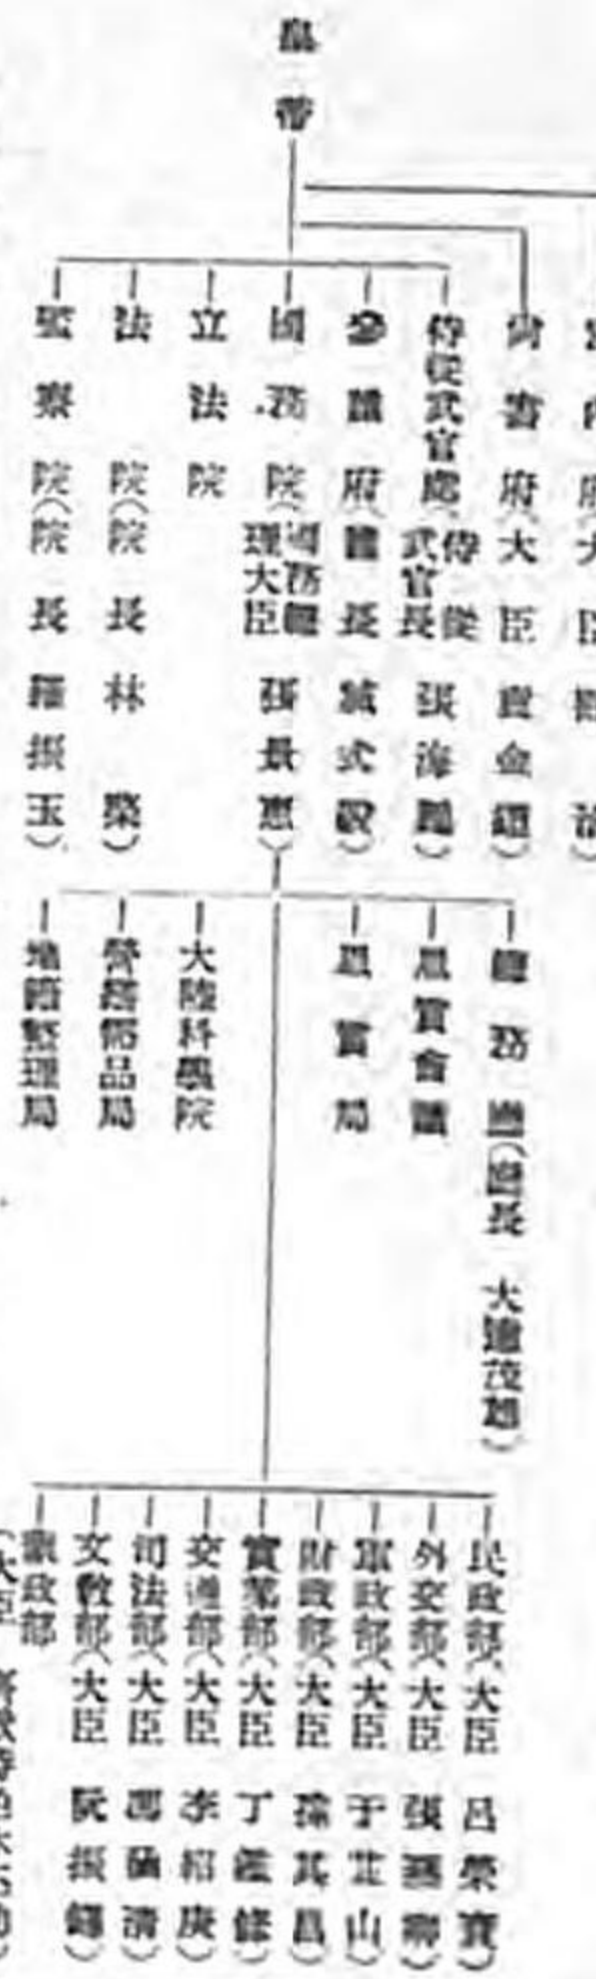 皇帝
宮內府(大臣 熙 洽)
尙書府(大臣 袁金鎧)
侍從武官處(侍從武官長 張海鵬)
參議府(議長 臧式毅)
國務院(國務總理大臣 張景惠)
立法院
法院(院長 林棨)
監察院(院長 羅振玉)
總務廳(廳長 大達茂雄)
恩賞會議
恩賞局
大陸科學院
營繕需品局
地籍整理局
民政部(大臣 呂榮寰)
外交部(大臣 張燕卿)
軍政部(大臣 于芷山)
財政部(大臣 孫其昌)
實業部(大臣 丁鑑修)
交通部(大臣 李紹庚)
司法部(大臣 馮涵清)
文敎部(大臣 阮振鐸)
蒙政部
(大臣